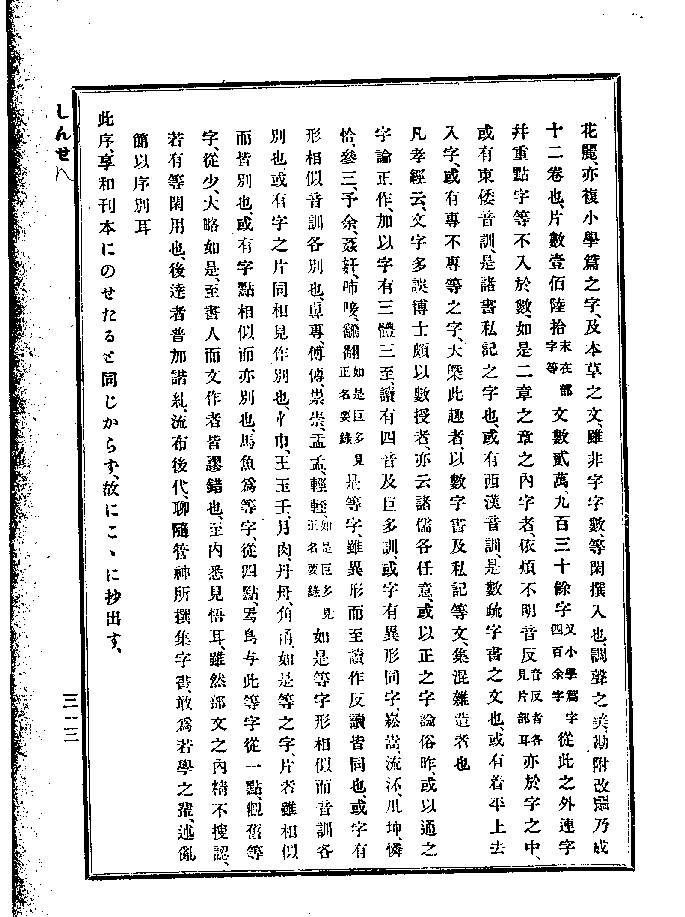 しんせ
花麗、亦複小學篇之字、及本草之文、雖非字字數等閑撰入也、調聲之美、勘附改張乃成
十二卷也、片數壹佰陸拾末在部字等文數貳萬九百三十餘字又小學篇字四百余字從此之外連字
幷重點字等不入於數、如是二章之章之內字者、依煩不明音反音反者各見片部耳亦於字之中、
或有東倭音訓、是諸書私記之字也、或有西漢音訓、是數疏字書之文也、或有着平上去
入字、或有專不專等之字、大槩此趣者、以數字書及私記等文、集混雜造者也
凡孝經云、文字多誤、博士頗以數授者、亦云諸儒各任意、或以正之字論俗作、或以通之
字論正作、加以字有三體三至、讀有四音及巨多訓、或字有異形同字、崧嵩、流㳅、坤、憐
叅三、予余、姦、翻如是巨多見正名要錄是等字、雖異形而至讀作反讀皆同也、或字有
形相似音訓各別也、專專、傅傳、崇祟、盂孟、輕輕如是巨多見正名要錄如是等字形相似而音訓各
別也、或有字之片同相見作別也、忄巾、王玉壬、月肉、丹舟角、如是等之字、片者雖相似
而皆別也、或有字點相似而亦別也、馬魚爲等字、從四點、鳥与此等字從一點、觀舊等
字、從少、大略如是、至書人而文作者皆謬錯也、至內悉見悟耳、雖然部文之內精不搜認、
若有等閑用也、後達者普加諧糺、流布後代、聊隨管神所撰集字書、敢爲若學之輩、述亂
簡以序別耳
此序、享和刊本にのせたると同じからず、故にこゝに抄出す、
三一三